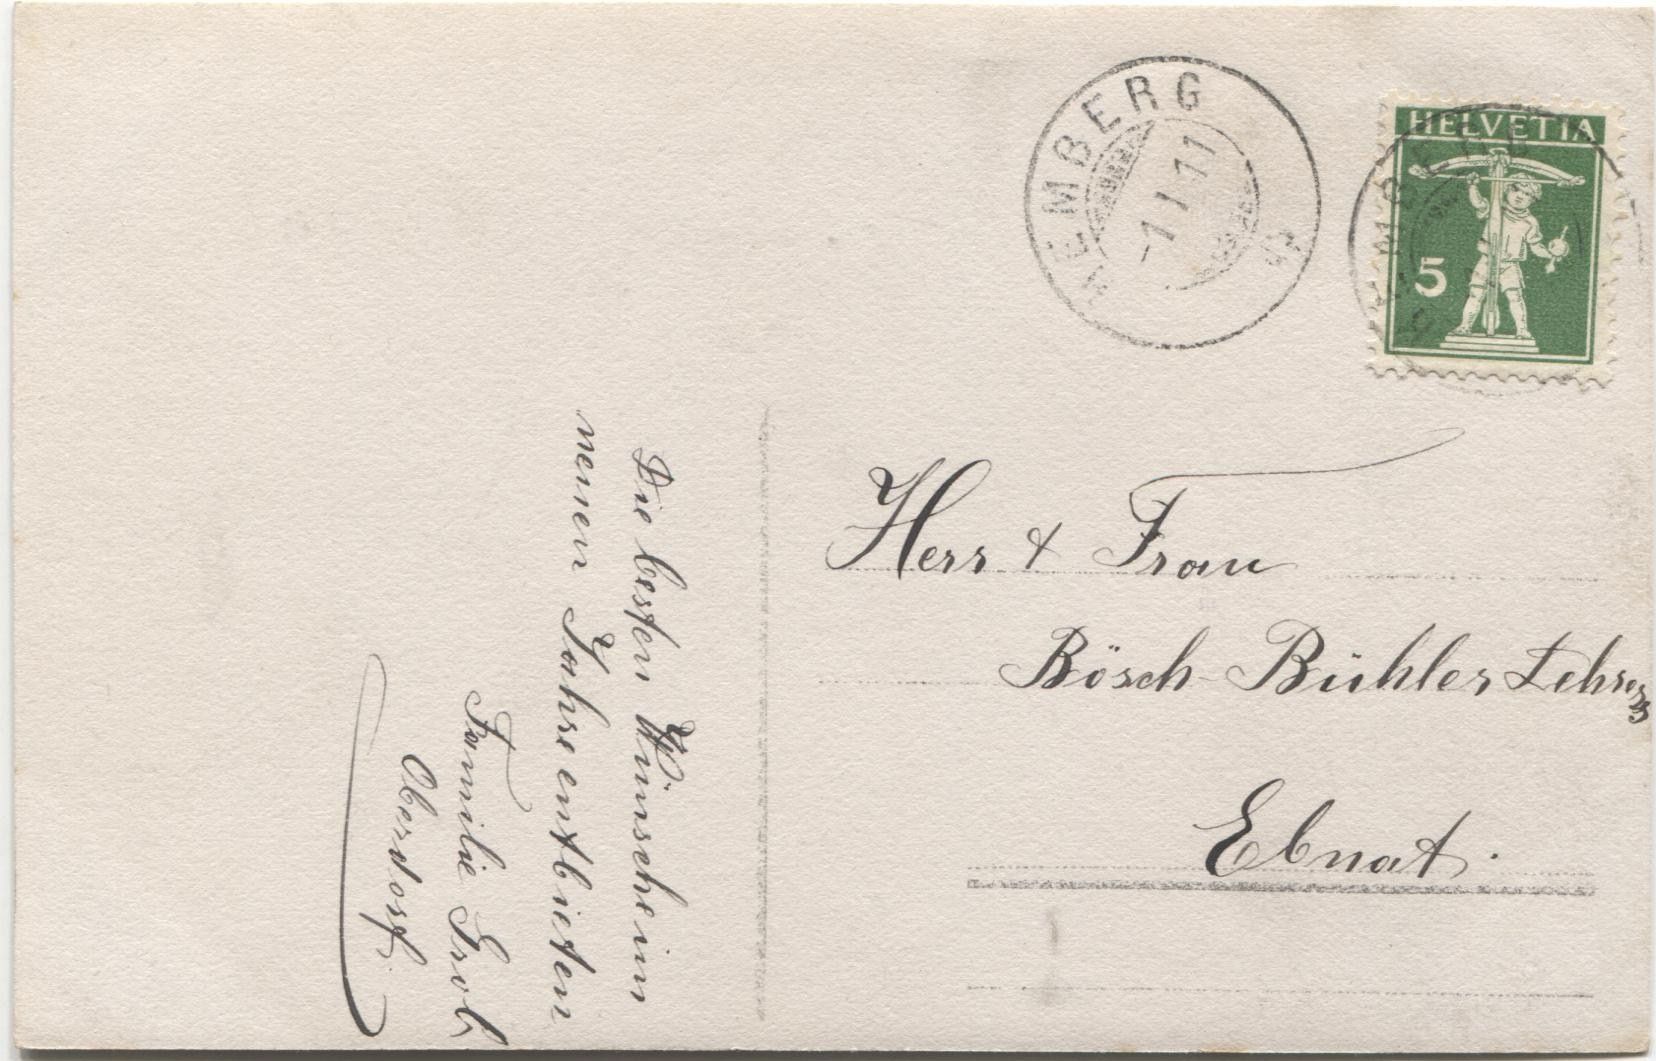 HEMBERG
-1 I 11
HELVETIA
5
Die besten Wünsche im
neuen Jahre entbieten
Familie Grob
Oberdorf.
Herr & Frau
Bösch-Bühler Lehrers
Ebnat.